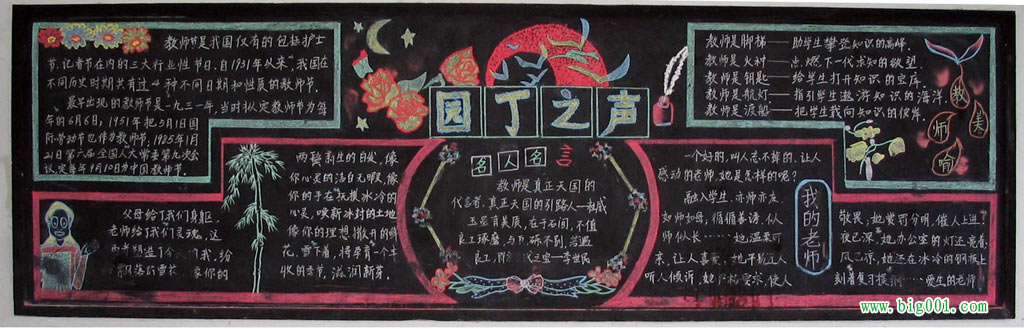 教师节是我国仅有的包括护士
节、记者节在内的三大行业性节日。自1931年以来，我国在
不同历史时期共有过4种不同日期和性质的教师节。
最早出现的教师节是一九三一年，当时拟定教师节为每
年的6月6日，1951年把5月1日国
际劳动节也作为教师节，1985年1月
21日第六届全国人大常委第九次会
议，定每年9月10日为中国教师节。
园丁之声
教师是脚梯——助学生攀登知识的高峰。
教师是火种——点燃下一代求知的欲望。
教师是钥匙——给学生打开知识的宝库。
教师是航灯——指引学生遨游知识的海洋。
教师是渡船——把学生载向知识的彼岸。
教师美喻
父母给了我们身躯，
老师给了我们灵魂，这
我，给
你的
两鬓新生的白发，像
你心灵的洁白无暇，像
你的手在抚摸冰冷的
心灵，唤新冰封的土地
像你的理想撒开的鲜
花，雪下着，将孕育一个丰
收的季节，滋润新芽。
名人名言
教师是真正天国的
代言者，真正天国的引路人—杜威
玉虽有美质，在于石间，不值
良工琢磨，与瓦砾不别，若遇
良工，之宝—李世民
一个好的，叫人忘不掉的，让人
感动的老师，她是怎样的呢？
融入学生，亦师亦友，
如师如母，循循善诱，似人
师似人长……她温柔可
亲，让人喜爱，她平易近人
听人倾诉，她严格要求，使人
我的老师
敬畏，她赏罚分明，催人上进，
夜已深，她办公室的灯还亮着，
风已凉，她还在冰冷的钢板上
刻着复习提纲……爱生的老师
www.big001.com